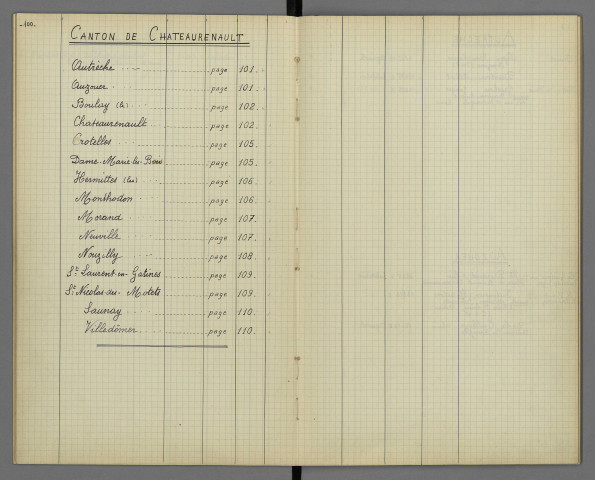 100.
CANTON DE CHATEAURENAULT
Autrèche page 101.
Auzouer page 101.
Boulay (le) page 102.
Chateaurenault page 102.
Crotelles page 105.
Dame-Marie-les-Bois page 105.
Hermittes (les) page 106
Monthodon page 106.
Morand page 107.
Neuville page 107.
Nouzilly page 108.
St Laurent-en-Gatines page 109.
St Nicolas-des-Motets page 109.
Saunay page 110.
Villedômer page 110.